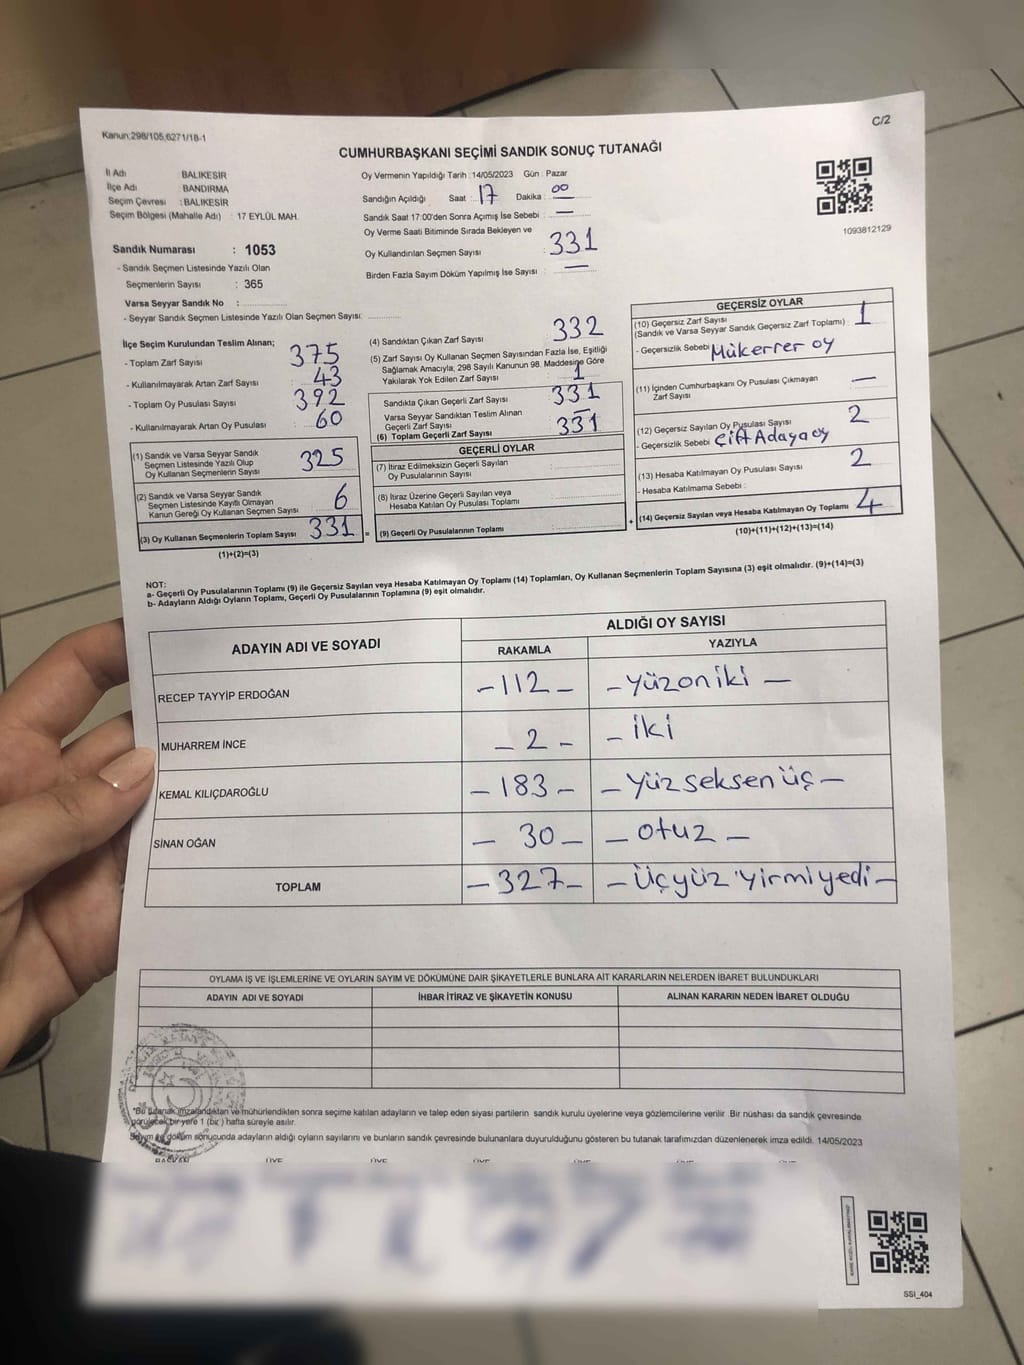 Kanun:298/105,6271/18-1
C/2
CUMHURBAŞKANI SEÇİMİ SANDIK SONUÇ TUTANAĞI
İl Adı BALIKESİR
İlçe Adı BANDIRMA
Seçim Çevresi : BALIKESİR
Seçim Bölgesi (Mahalle Adı) : 17 EYLÜL MAH.
Sandık Numarası : 1053
- Sandık Seçmen Listesinde Yazılı Olan
Seçmenlerin Sayısı : 365
Varsa Seyyar Sandık No :
- Seyyar Sandık Seçmen Listesinde Yazılı Olan Seçmen Sayısı:
Oy Vermenin Yapıldığı Tarih :14/05/2023 Gün : Pazar
Sandığın Açıldığı Saat : 17 Dakika : 00
Sandık Saat 17:00'den Sonra Açımış İse Sebebi : —
Oy Verme Saati Bitiminde Sırada Bekleyen ve
Oy Kullandırılan Seçmen Sayısı : 331
Birden Fazla Sayım Döküm Yapılmış İse Sayısı : —
1093812129
İlçe Seçim Kurulundan Teslim Alınan;
- Toplam Zarf Sayısı : 375
- Kullanılmayarak Artan Zarf Sayısı : 43
- Toplam Oy Pusulası Sayısı : 392
- Kullanılmayarak Artan Oy Pusulası : 60
(1) Sandık ve Varsa Seyyar Sandık
Seçmen Listesinde Yazılı Olup
Oy Kullanan Seçmenlerin Sayısı 325
(2) Sandık ve Varsa Seyyar Sandık
Seçmen Listesinde Kayıtlı Olmayan
Kanun Gereği Oy Kullanan Seçmen Sayısı 6
(3) Oy Kullanan Seçmenlerin Toplam Sayısı 331 =
(1)+(2)=(3)
(4) Sandıktan Çıkan Zarf Sayısı 332
(5) Zarf Sayısı Oy Kullanan Seçmen Sayısından Fazla İse, Eşitliği
Sağlamak Amacıyla, 298 Sayılı Kanunun 98. Maddesine Göre
Yakılarak Yok Edilen Zarf Sayısı : 1
Sandıkta Çıkan Geçerli Zarf Sayısı : 331
Varsa Seyyar Sandıktan Teslim Alınan
Geçerli Zarf Sayısı : —
(6) Toplam Geçerli Zarf Sayısı 331
GEÇERLİ OYLAR
(7) İtiraz Edilmeksizin Geçerli Sayılan
Oy Pusulalarının Sayısı :
(8) İtiraz Üzerine Geçerli Sayılan veya
Hesaba Katılan Oy Pusulası Toplamı :
(9) Geçerli Oy Pusulalarının Toplamı : +
GEÇERSİZ OYLAR
(10) Geçersiz Zarf Sayısı
(Sandık ve Varsa Seyyar Sandık Geçersiz Zarf Toplamı) : 1
- Geçersizlik Sebebi : Mükerrer oy
(11) İçinden Cumhurbaşkanı Oy Pusulası Çıkmayan
Zarf Sayısı —
(12) Geçersiz Sayılan Oy Pusulası Sayısı 2
- Geçersizlik Sebebi : Çift Adaya oy
(13) Hesaba Katılmayan Oy Pusulası Sayısı 2
- Hesaba Katılmama Sebebi :
(14) Geçersiz Sayılan veya Hesaba Katılmayan Oy Toplamı 4
(10)+(11)+(12)+(13)=(14)
NOT:
a- Geçerli Oy Pusulalarının Toplamı (9) ile Geçersiz Sayılan veya Hesaba Katılmayan Oy Toplamı (14) Toplamları, Oy Kullanan Seçmenlerin Toplam Sayısına (3) eşit olmalıdır. (9)+(14)=(3)
b- Adayların Aldığı Oyların Toplamı, Geçerli Oy Pusulalarının Toplamına (9) eşit olmalıdır.
ADAYIN ADI VE SOYADI ALDIĞI OY SAYISI
RAKAMLA YAZIYLA
RECEP TAYYİP ERDOĞAN -112- -Yüzoniki-
MUHARREM İNCE -2- -iki
KEMAL KILIÇDAROĞLU -183- -Yüz seksen üç-
SİNAN OĞAN -30- -otuz-
TOPLAM -327- -Üçyüz yirmi yedi-
OYLAMA İŞ VE İŞLEMLERİNE VE OYLARIN SAYIM VE DÖKÜMÜNE DAİR ŞİKAYETLERLE BUNLARA AİT KARARLARIN NELERDEN İBARET BULUNDUKLARI
ADAYIN ADI VE SOYADI İHBAR İTİRAZ VE ŞİKAYETİN KONUSU ALINAN KARARIN NEDEN İBARET OLDUĞU
*Bu tutanak imzalandıktan ve mühürlendikten sonra seçime katılan adayların ve talep eden siyasi partilerin sandık kurulu üyelerine veya gözlemcilerine verilir. Bir nüshası da sandık çevresinde
görülecek bir yere 1 (bir) hafta süreyle asılır.
Sayım ve döküm sonucunda adayların aldığı oyların sayılarını ve bunların sandık çevresinde bulunanlara duyurulduğunu gösteren bu tutanak tarafımızdan düzenlenerek imza edildi. 14/05/2023
BAŞKAN ÜYE ÜYE ÜYE ÜYE ÜYE ÜYE
SSI_404